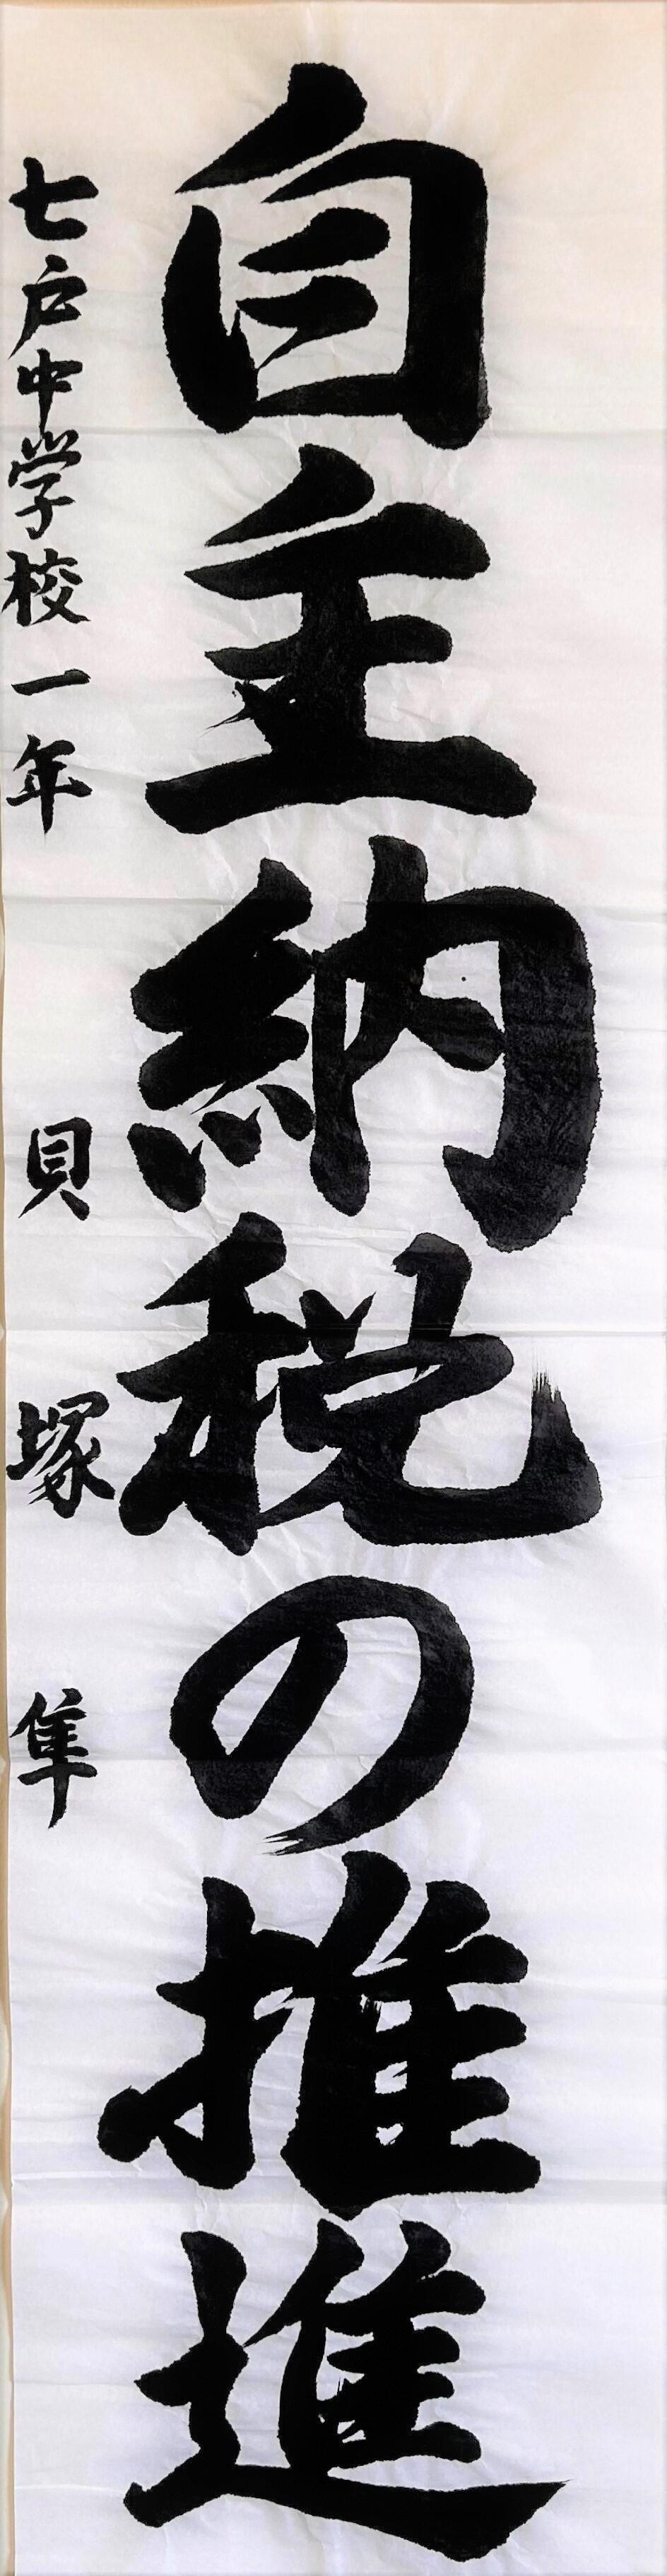 自主納税の推進
七戸中学校一年 貝塚隼